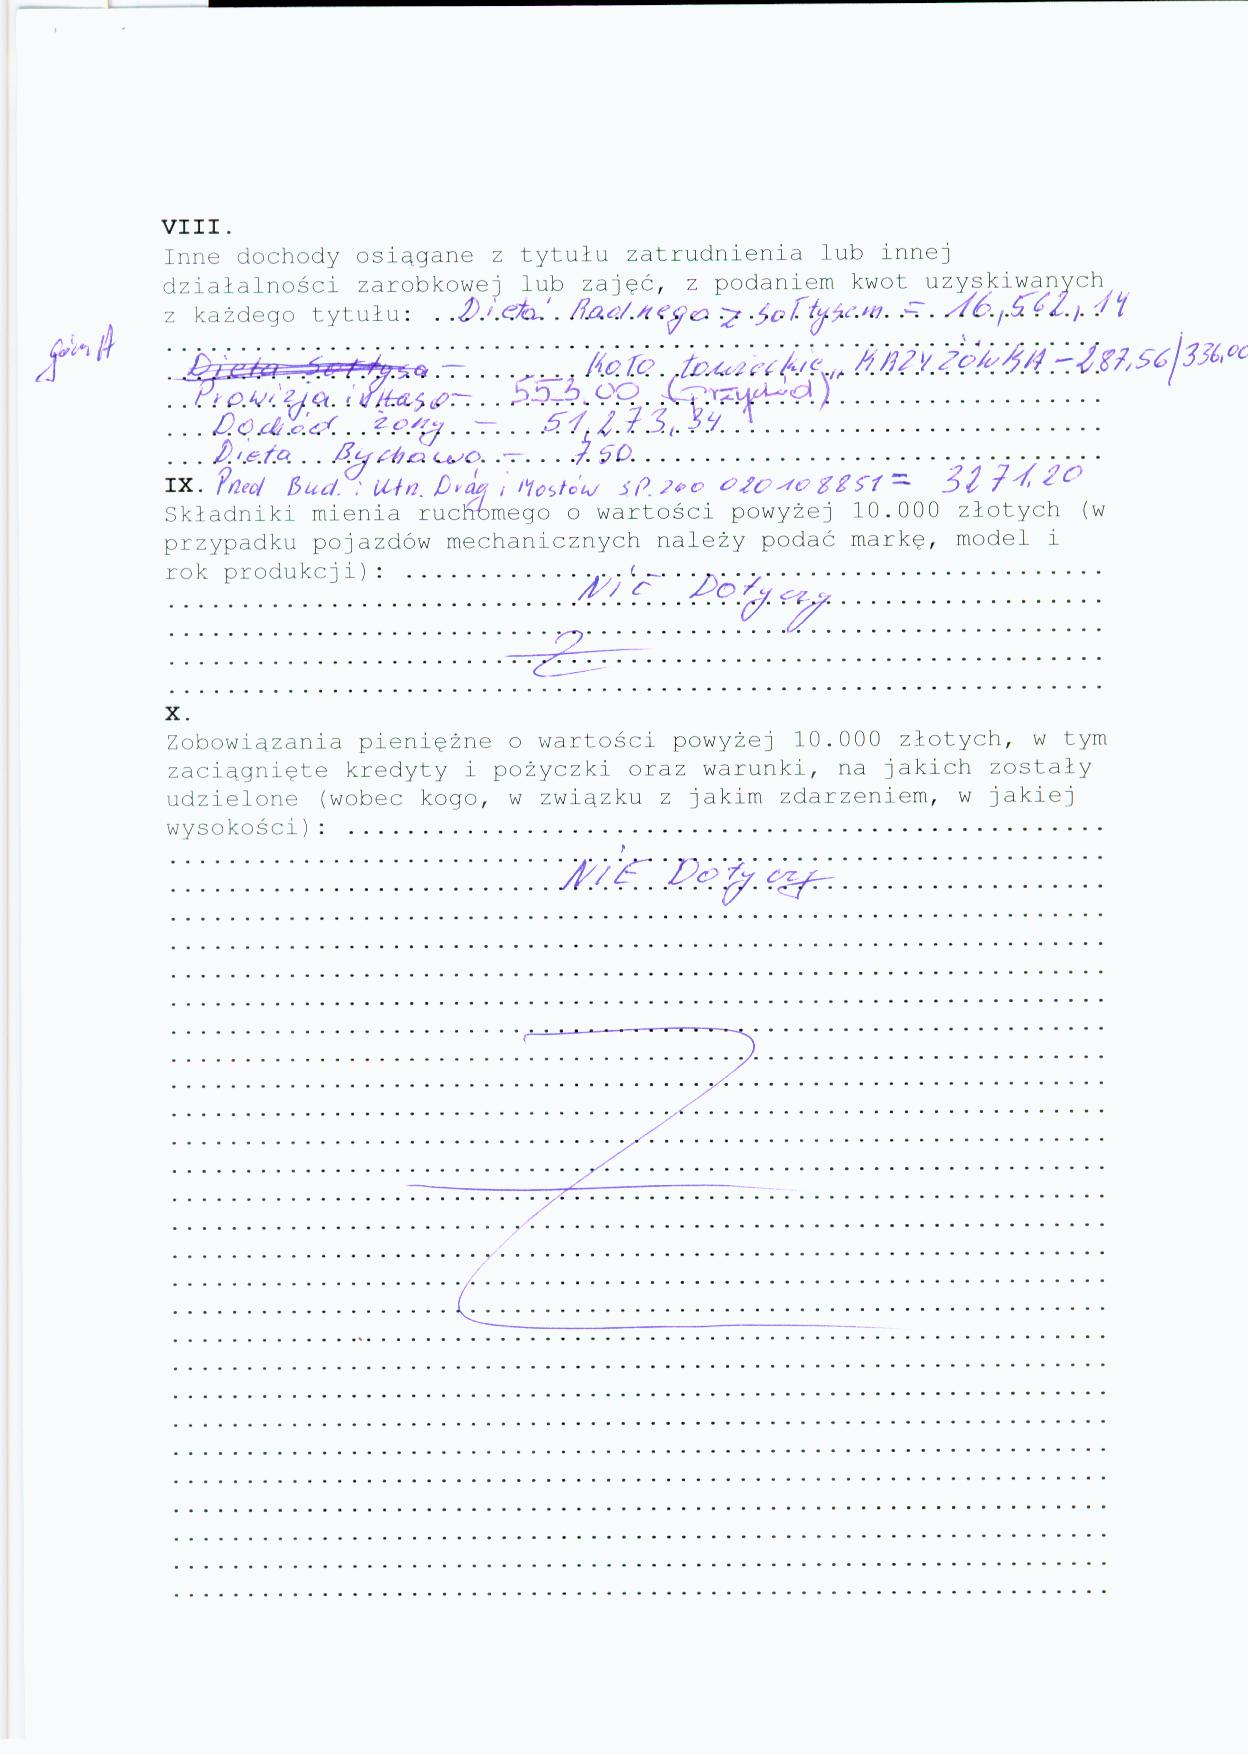 VIII.
Inne dochody osiągane z tytułu zatrudnienia lub innej
działalności zarobkowej lub zajęć, z podaniem kwot uzyskiwanych
z każdego tytułu: Dieta Radnego z sołtysem = 16,562,14
Dieta Sołtysa - Koło Łowieckie „ - 287,56/336,00
Prowizja inkaso - 553.00 (Przychód)
Dochód żony - 51,273,34
Dieta Bychawa - 750
IX. Przed Bud. i Utn. Dróg i Mostów SP. zoo 020108851 = 3271.20
Składniki mienia ruchomego o wartości powyżej 10.000 złotych (w
przypadku pojazdów mechanicznych należy podać markę, model i
rok produkcji):
Nie Dotyczy
X.
Zobowiązania pieniężne o wartości powyżej 10.000 złotych, w tym
zaciągnięte kredyty i pożyczki oraz warunki, na jakich zostały
udzielone (wobec kogo, w związku z jakim zdarzeniem, w jakiej
wysokości):
NIE Dotyczy